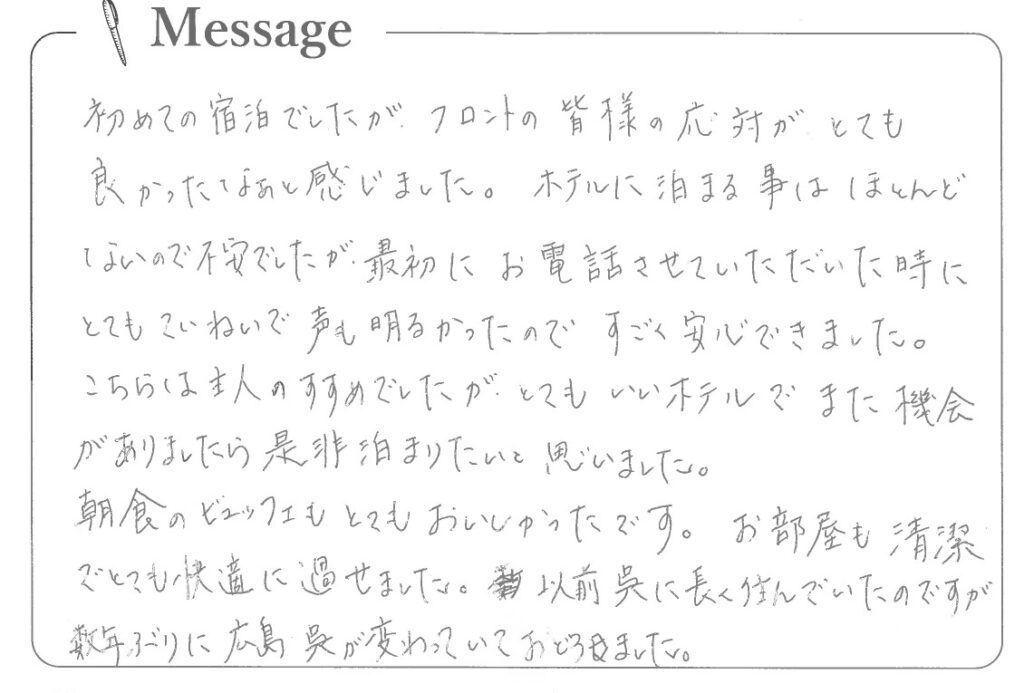 Message
初めての宿泊でしたが、フロントの皆様の応対が、とても
良かったなぁと感じました。ホテルに泊まる事はほとんど
ないので不安でしたが、最初にお電話させていただいた時に
とてもていねいで声も明るかったのですごく安心できました。
こちらは主人のすすめでしたが、とてもいいホテルでまた機会
がありましたら是非泊まりたいと思いました。
朝食のビュッフェもとてもおいしかったです。お部屋も清潔
でとても快適に過せました。以前呉に長く住んでいたのですが
数年ぶりに広島呉が変わっていておどろきました。